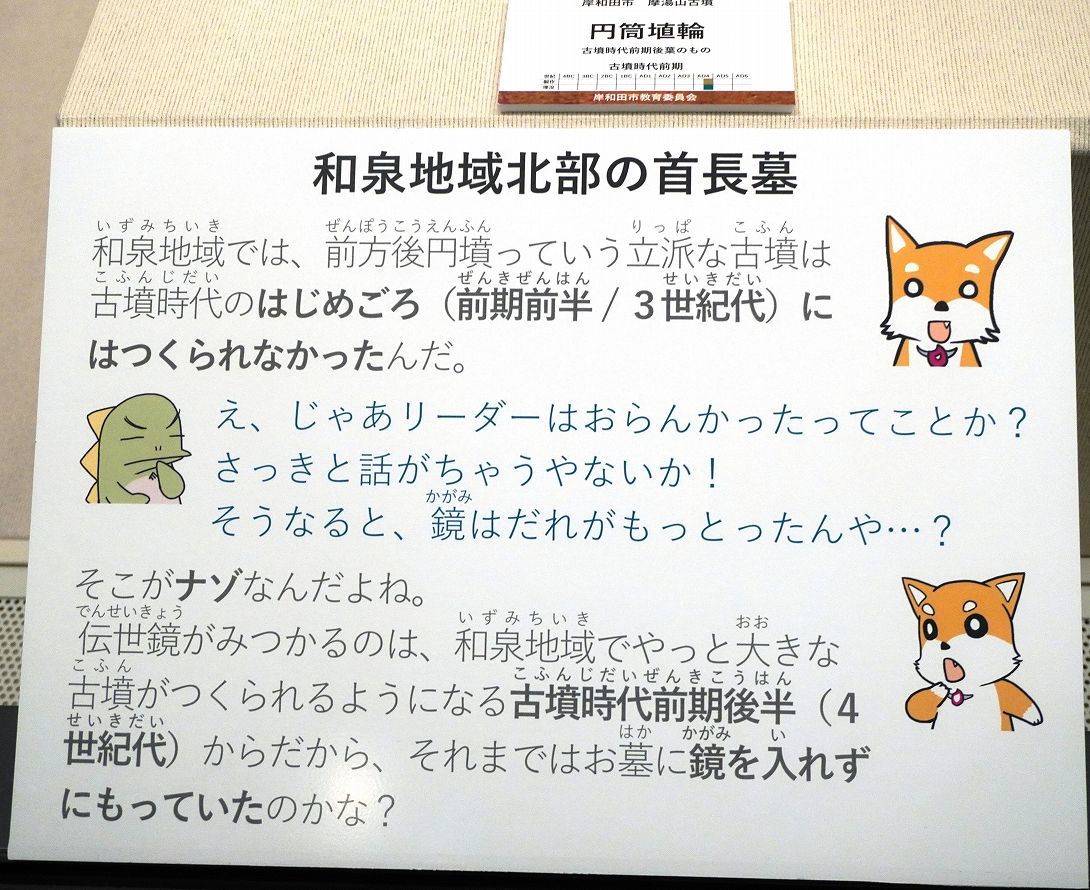 岸和田市 摩湯山古墳
円筒埴輪
古墳時代前期後葉のもの
古墳時代前期
世紀 4BC 3BC 2BC 1BC AD1 AD2 AD3 AD4 AD5 AD6
製作
埋没
岸和田市教育委員会
和泉地域北部の首長墓
いずみちいき ぜんぽうこうえんふん りっぱ こふん
和泉地域では、前方後円墳っていう立派な古墳は
こふんじだい ぜんきぜんはん せいきだい
古墳時代のはじめごろ（前期前半/３世紀代）に
はつくられなかったんだ。
え、じゃあリーダーはおらんかったってことか？
さっきと話がちゃうやないか！
かがみ
そうなると、鏡はだれがもっとったんや…？
そこがナゾなんだよね。
でんせいきょう いずみちいき おお
伝世鏡がみつかるのは、和泉地域でやっと大きな
こふん こふんじだいぜんきこうはん
古墳がつくられるようになる古墳時代前期後半（４
せいきだい はか かがみ い
世紀代）からだから、それまではお墓に鏡を入れず
にもっていたのかな？